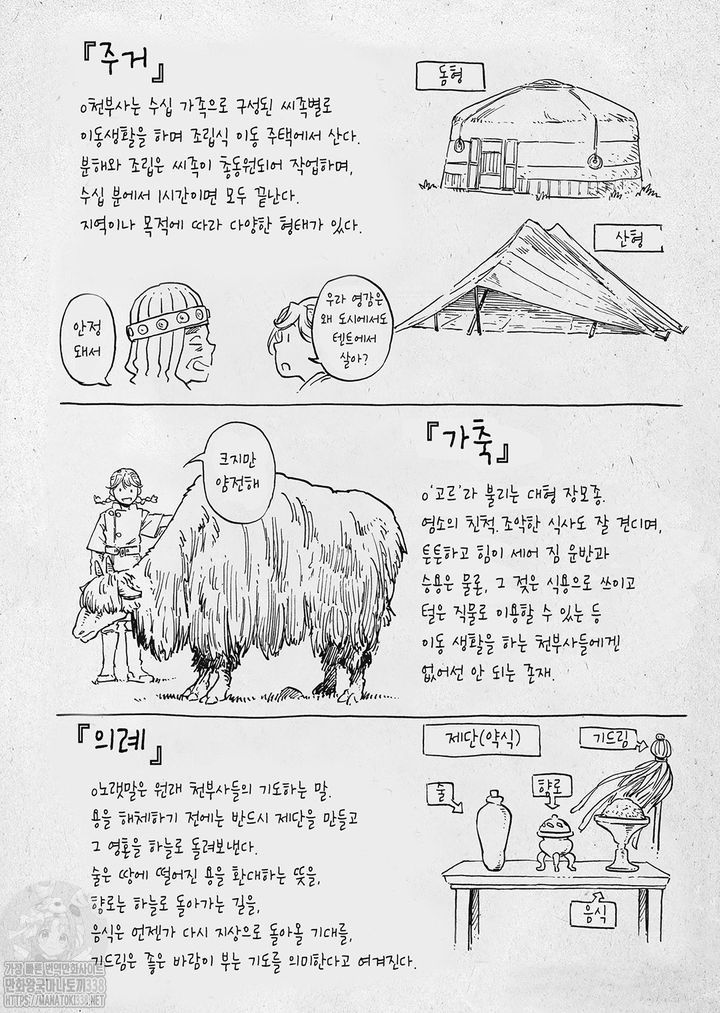 『주거』
돔형
○천부사는 수십 가족으로 구성된 씨족별로
이동생활을 하며 조립식 이동 주택에서 산다.
분해와 조립은 씨족이 총동원되어 작업하며,
수십 분에서 1시간이면 모두 끝난다.
지역이나 목적에 따라 다양한 형태가 있다.
산형
우라 영감은
왜 도시에서도
텐트에서
살아?
안정
돼서
『가축』
크지만
얌전해
○'고르'라 불리는 대형 장모종.
염소의 친척. 조악한 식사도 잘 견디며,
튼튼하고 힘이 세어 짐 운반과
승용은 물론, 그 젖은 식용으로 쓰이고
털은 직물로 이용할 수 있는 등
이동 생활을 하는 천부사들에겐
없어선 안 되는 존재.
『의례』
제단(약식)
기드림
술
향로
음식
○노랫말은 원래 천부사들의 기도하는 말.
용을 해체하기 전에는 반드시 제단을 만들고
그 영혼을 하늘로 돌려보낸다.
술은 땅에 떨어진 용을 환대하는 뜻을,
향로는 하늘로 돌아가는 길을,
음식은 언젠가 다시 지상으로 돌아올 기대를,
기드림은 좋은 바람이 부는 기도를 의미한다고 여겨진다.
가장 빠른 번역만화사이트
만화왕국마나토끼338
HTTPS://MANATOKI338.NET